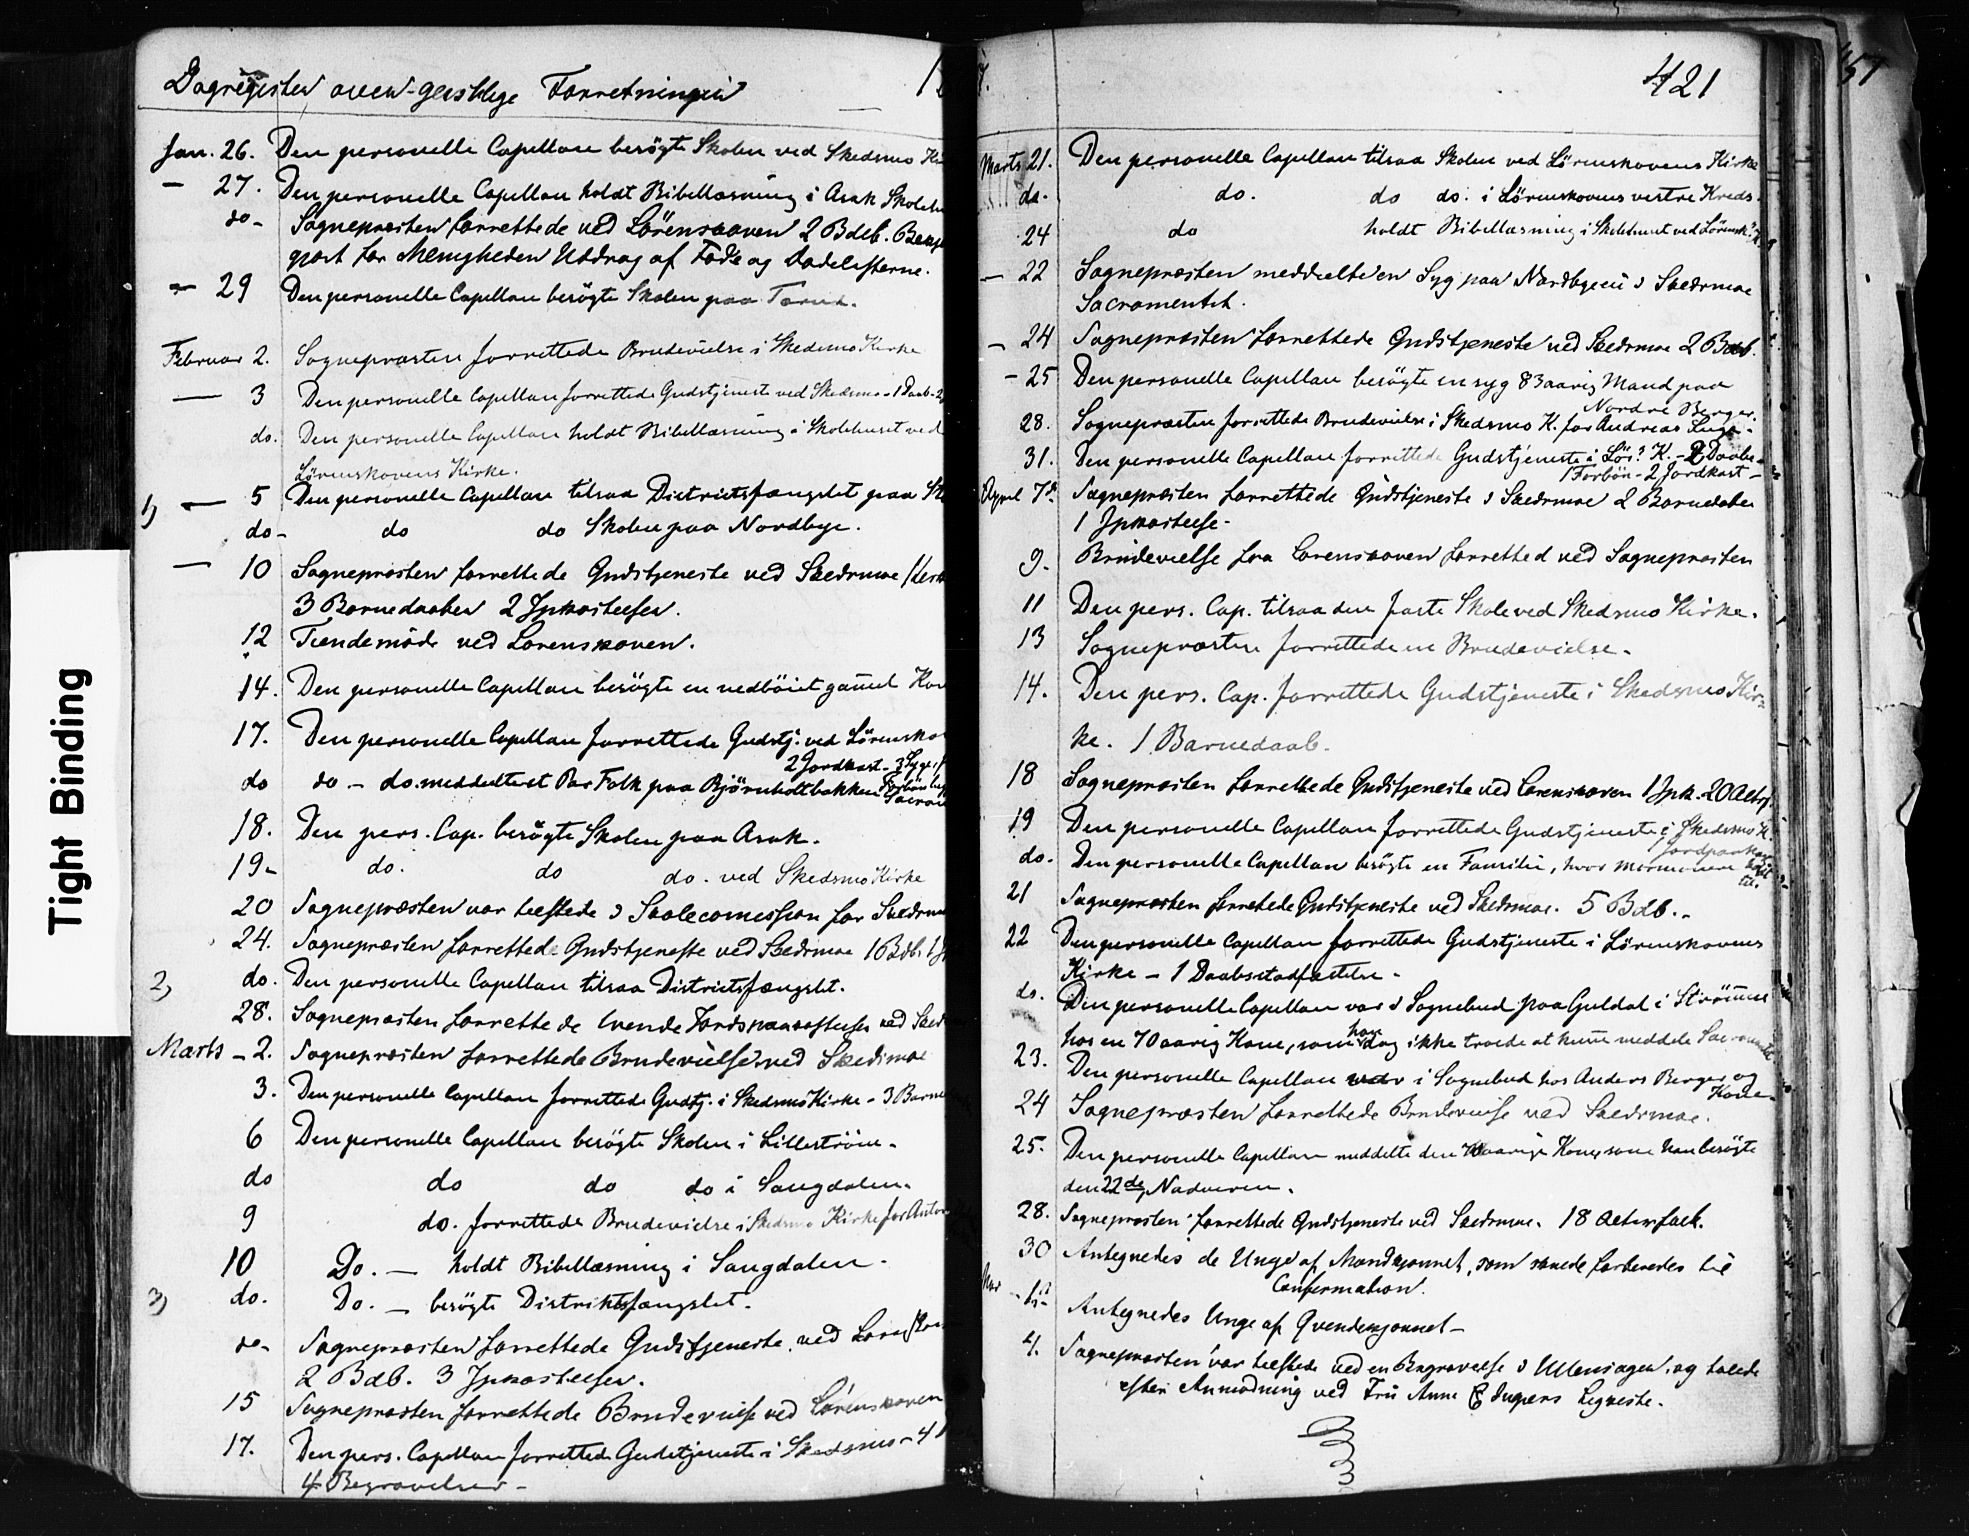 Dagregister over geistlige Forretninger
Jan. 26. Den personelle Capellan besögte Skolen ved Skedsmo Ki
— 27. Den personelle Capellan holdt Bibellæsning i Asak Skolehu
do - Sognepræsten forrettede ved Lörenskoven 2 Bdb.
gjort for Menigheden Uddrag af Føde og Dødslisterne.
— 29 Den personelle Capellan besögte Skolen paa
Februar 2. Sognepræsten forrettede Brudevielse i Skedsmo Kirke
— 3 Den personelle Capellan forrettede Gudstjeneste ved Skedsmo - 1 Daab - 2
do. Den personelle Capellan holdt Bibellæsning i Skolehuset ved
Lörenskovens Kirke.
1) — 5 Den personelle Capellan tilsaa Districtsfængslet paa
do - do do Skolen paa Nordbye.
— 10 Sognepræsten forrettede Gudstjeneste ved Skedsmoe
3 Barnedaaber 2 Jpkastelser.
12 Tiendemöde ved Lorenskoven.
14. Den personelle Capellan besögte en nedböiet gam̄el Kon
17. Den personelle Capellan forrettede Gudstj. ved Lörensko
2 Jordkast - 3 Syge
do do - do. meddelte et Par Folk paa Björnholtbakken
18. Den pers. Cap. besögte Skolen paa Asak.
19 - do. do do. ved Skedsmo Kirke
20 Sognepræsten var tilstede i Skolecomission for Skedsmo
24. Sognepræsten forrettede Gudstjeneste ved Skedsmoe 1 Bdb.
2) do. Den personelle Capellan tilsaa Districtsfængslet.
28. Sognepræsten forrettede tvende Jordpaakastelser ved Sked
Marts - 2. Sognepræsten forrettede Brudevielse ved Skedsmoe
3. Den personelle Capellan forrettede Gudtj. i Skedsmo Kirke - 3 Barne
6 Den personelle Capellan besögte Skolen i Lilleström -
do do do do i Sangdalen.
9 do. forrettede Brudevielse i Skedsmo Kirke for Anton
10 Do. — holdt Bibellæsning i Sangdalen -
3) do. Do. — besögte Distriktsfængslet.
do - Sognepræsten forrettede Gudstjeneste ved
2 Bdb. 3 Jpkastelser.
15 Sognepræsten forrettede Brudevielse ved Lörenskoven
17. Den pers. Capellan forrettede Gudstjeneste i Skedsmo - 4
4 Begravelser -
421
Marts 21. Den personelle Capellan tilsaa Skolen ved Lörenskovens Kirke
do. do. do do. i Lörenskovens vestre Kreds.
24 do holdt Bibellæsning i Skolehuset ved Lörensk. K.
— 22 Sognepræsten meddeelte en Syg paa Nordbyeie i Skedsmoe
Sacramentet.
— 24 Sognepræsten forrettede Gudstjeneste ved Skedsmoe 2 Bdb.
— 25 Den personelle Capellan besögte en syg 83 aarig Mand paa
Nordre Berger.
28. Sognepræsten forrettede Brudevielse i Skedsmo K. for Andreas
31. Den personelle Capellan forrettede Gudstjeneste i Lös? K. - 2 Daabe -
1 Forbön - 2 Jordkast -
April 7de Sognepræsten forrettede Gudstjeneste i Skedsmoe 2 Barnedaaber
1 Jpkastelse -
9. Brudevielse fra Lorenskoven forrettet ved Sognepræsten
11 Den pers. Cap. tilsaa den faste Skole ved Skedsmo Kirke.
13 Sognepræsten forrettede en Brudevielse -
14. Den pers. Cap. forrettede Gudstjeneste i Skedsmo Kir-
ke. 1 Barnedaab.
18 Sognepræsten forrettede Gudstjeneste ved Lorenskoven 1 Jpk. 20 Altrg.
19 Den personelle Capellan forrettede Gudstjeneste i Skedsmo K.
do. Den personelle Capellan besögte en Familie, hvor Mormoner holdt
til.
21 Sognepræsten forrettede Gudstjeneste ved Skedsmoe. 5 Bdb. -
22 Den personelle Capellan forrettede Gudstjeneste i Lörenskovens
Kirke - 1 Daabsstadfæstelse -
do. Den personelle Capellan var i Sognebud paa Guldal i Ström̄en
hos en 70 aarig Kone, som han dog ikke troede at kun̄e meddele Sacramentet
23. Den personelle Capellan var i Sognebud hos Anders Berger og
Kone -
24 Sognepræsten forrettede Brudevielse ved Skedsmoe.
25. Den personelle Capellan meddelte den 70 aarige Kone, som han besögte
den 22de, Nadveren.
28. Sognepræsten forrettede Gudstjeneste ved Skedsmoe. 18 Altersfolk.
30 Antegnedes de Unge af Mandkjønnet, som skulde forberedes til
Confirmation.
Antegnedes Unge af Qvindekjønnet -
4. Sognepræsten var tilstede ved en Begravelse i Ullensager og talede
efter Anmodning ved Fru Anne E Jngiers Ligkiste.
Tight Binding